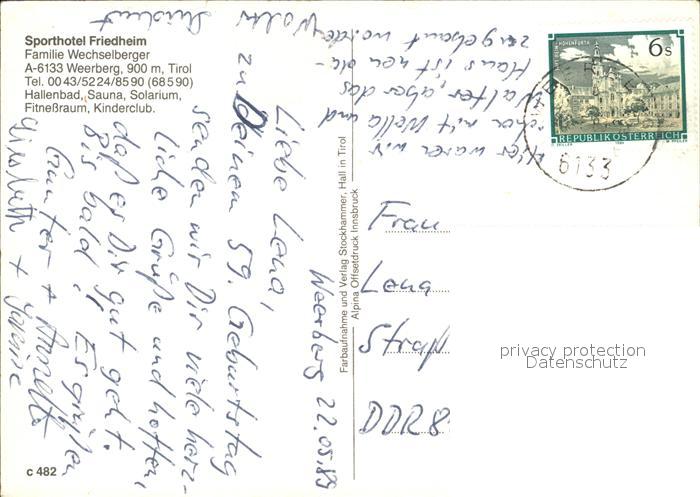 Sporthotel Friedheim
Familie Wechselberger
A-6133 Weerberg, 900 m, Tirol
Tel. 00 43/52 24/85 90 (6 85 90)
Hallenbad, Sauna, Solarium,
Fitneßraum, Kinderclub.
Weerberg 22.05.89
Liebe Lena,
zu Deinem 59. Geburtstag
senden wir Dir viele herz-
liche Grüße und hoffen,
daß es Dir gut geht.
Bis bald! Es grüßen
Gunter + Annelie
+ Janine
Hier waren wir
schon mit Wella und
Walter, aber das
Haus ist neu da-
zu gebaut worden
Farbaufnahme und Verlag Stockhammer, Hall in Tirol
Alpina Offsetdruck Innsbruck
6s
REPUBLIK ÖSTERREICH
6133
Frau
Lena
DDR 8
privacy protection
Datenschutz
c 482